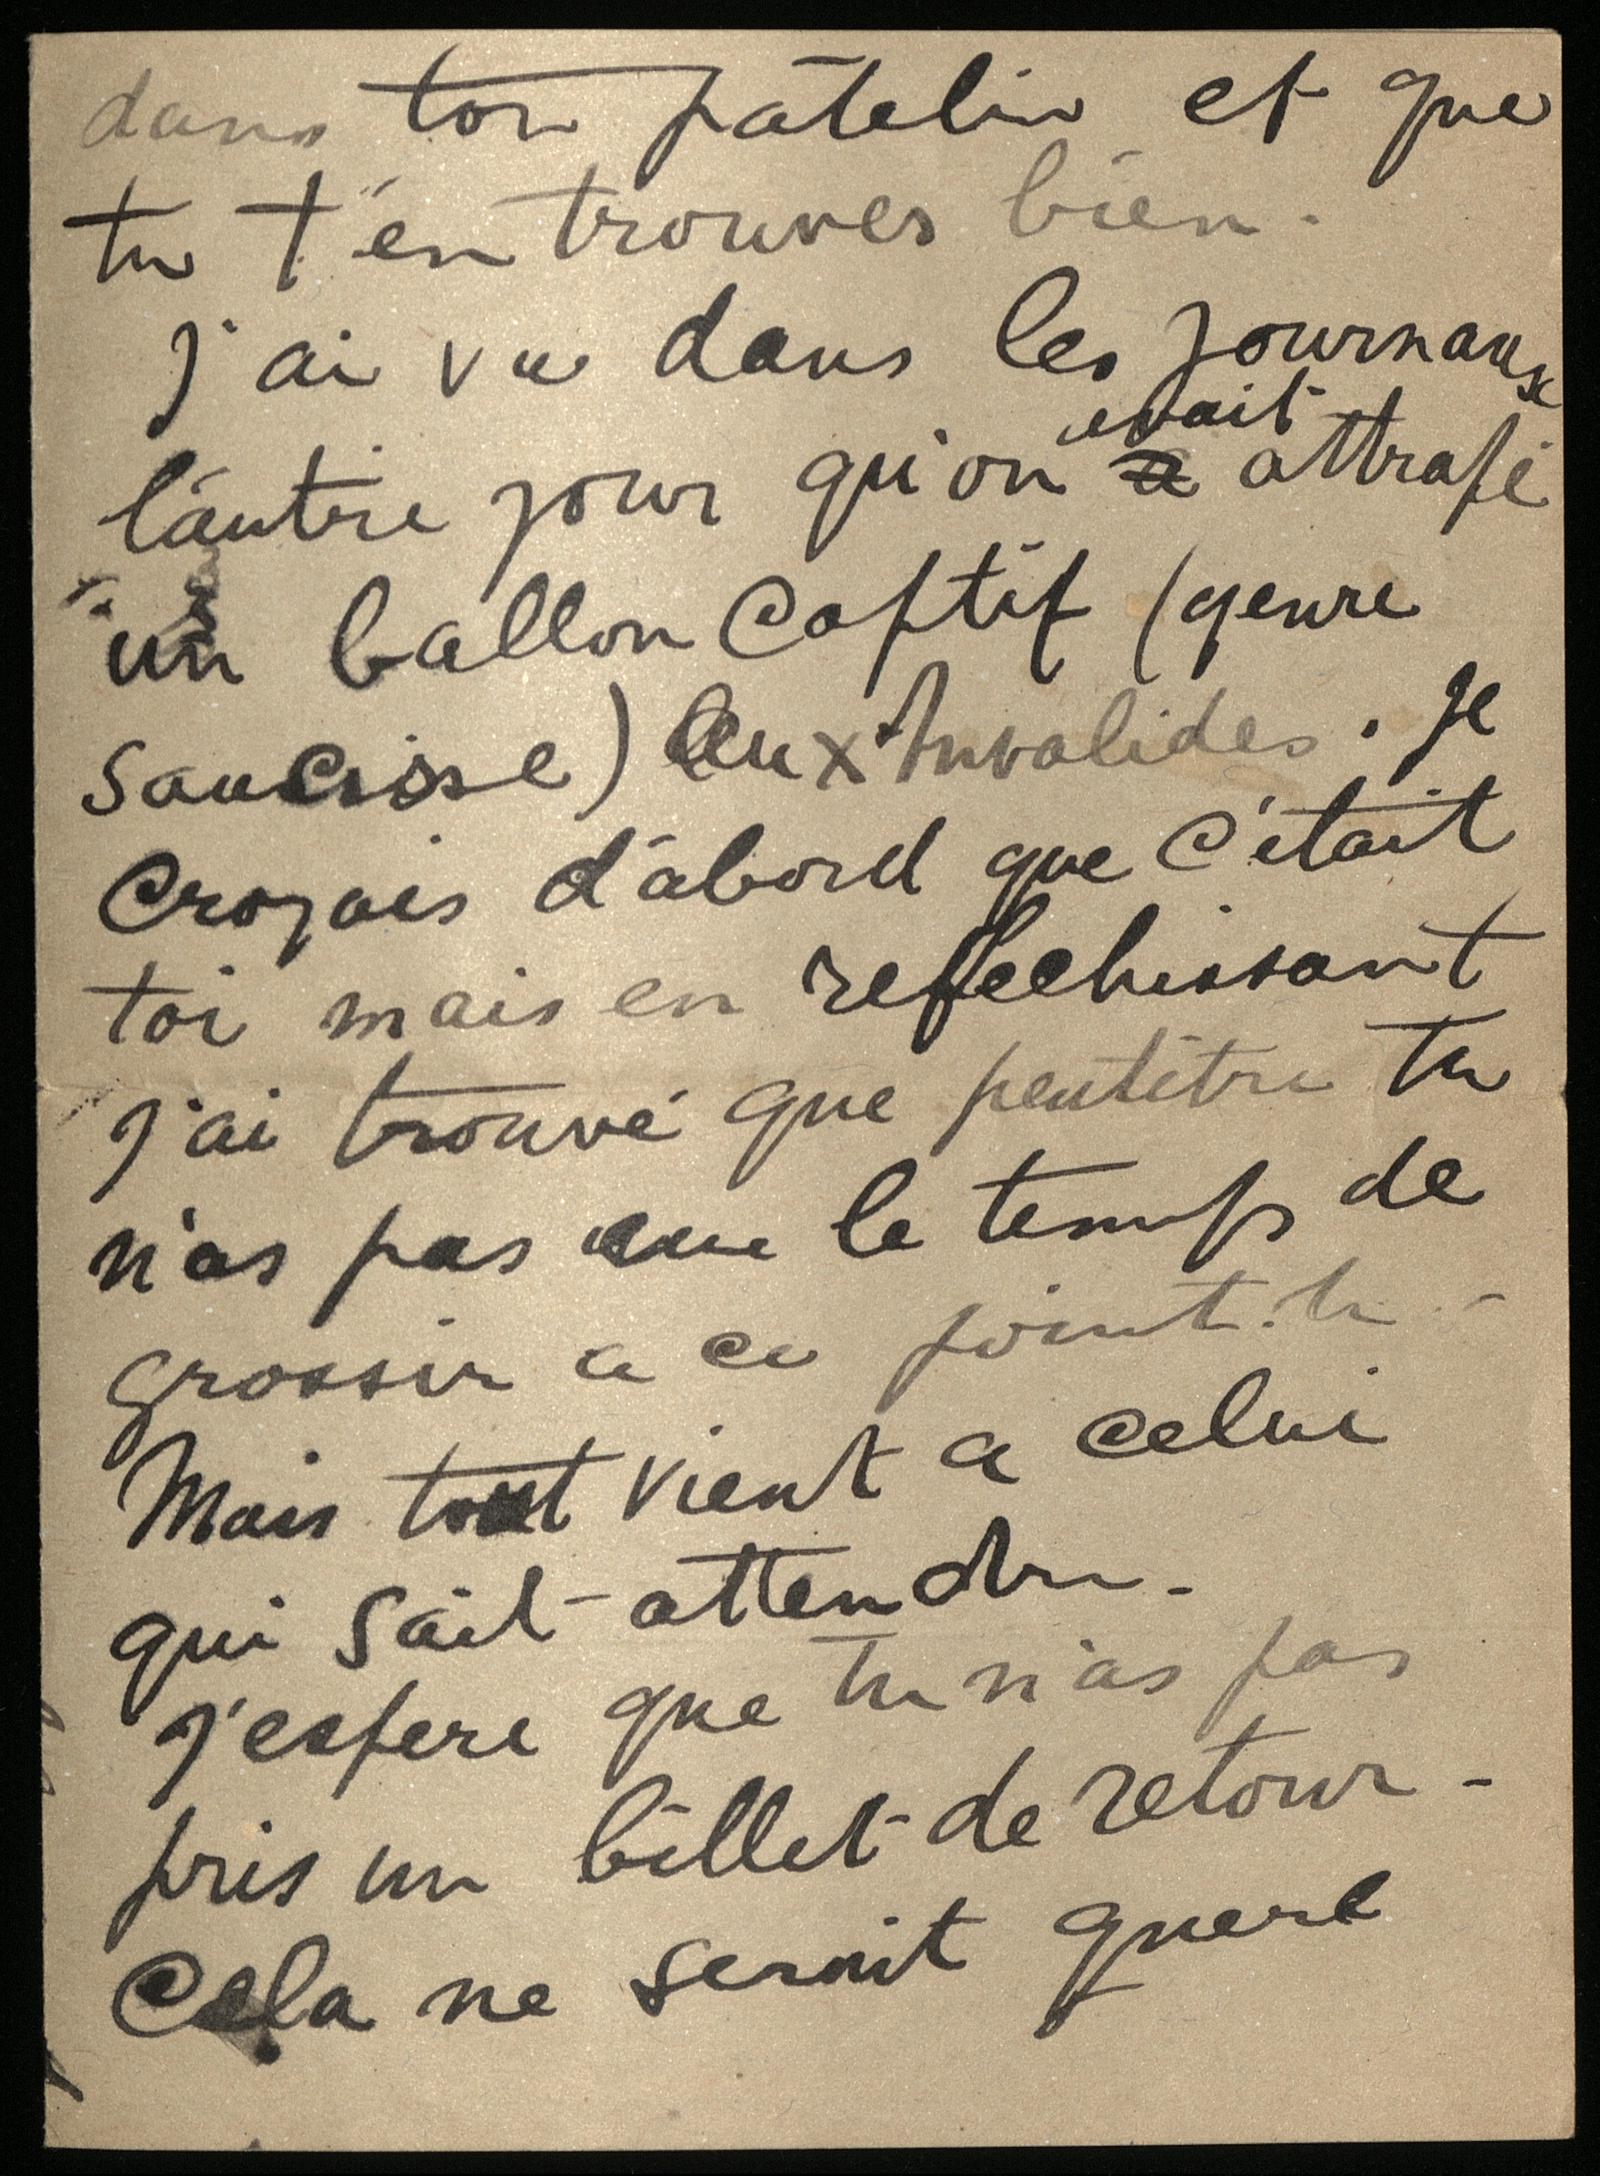 dans ton pâtelin et que
tu t'en trouves bien.
j'ai vu dans les journaux
l'autre jour qu'on avait attrapé
un ballon captif (genre
saucisse) aux Invalides. Je
croyais d'abord que c'était
toi mais en reflechissant
j'ai trouvé que peutêtre tu
n'as pas eu le temps de
grossir a ce point. là -
Mais tout vient a celui
qui sait attendre -
j'espere que tu n'as pas
pris un billet de retour -
Cela ne serait guere